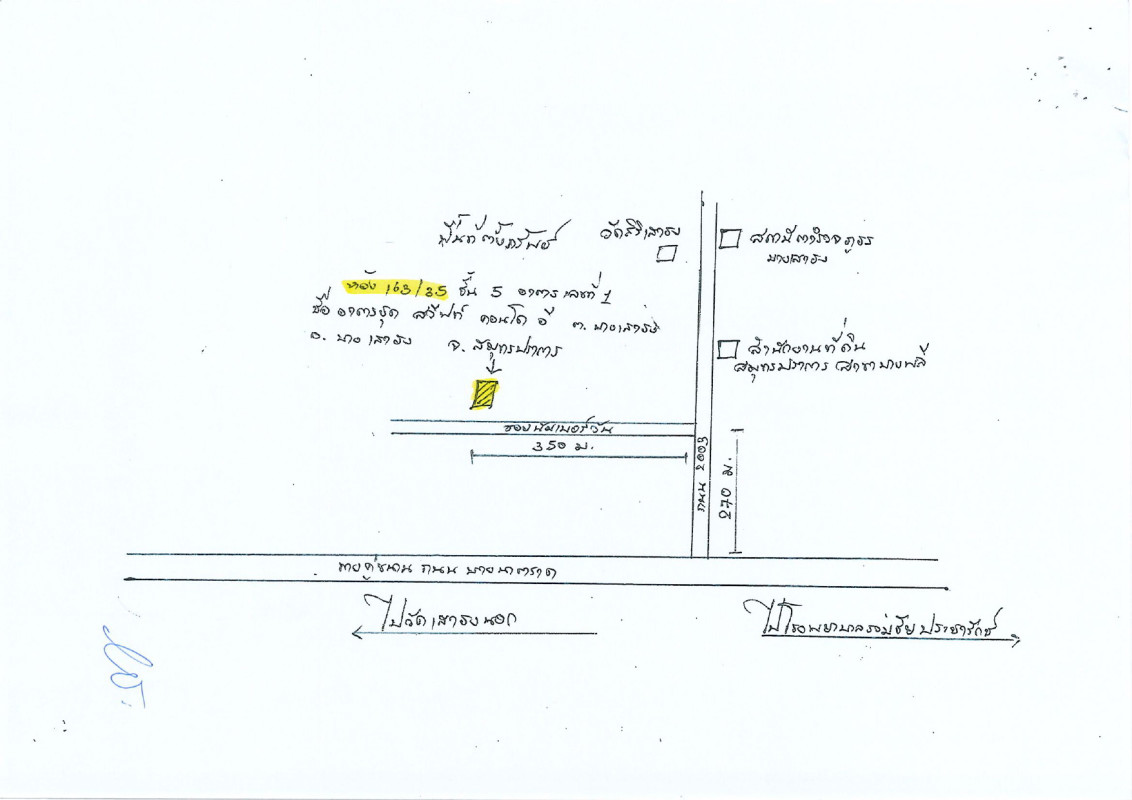 ที่ตั้งทรัพย์
วัดศิริเสาธง
สถานีตำรวจภูธร
บางเสาธง
ห้อง 163/35 ชั้น 5 อาคารเลขที่ 1
ชื่อ อาคารชุด สวีทท์ คอนโด อี ต. บางเสาธง
อ. บางเสาธง จ. สมุทรปราการ
สำนักงานที่ดิน
สมุทรปราการ สาขาบางพลี
350 ม.
ถนน 2003
270 ม.
ทางคู่ขนาน ถนน บางนาตราด
ไปวัดเสาธงนอก
ไปโรงพยาบาลรวมชัยประชารักษ์